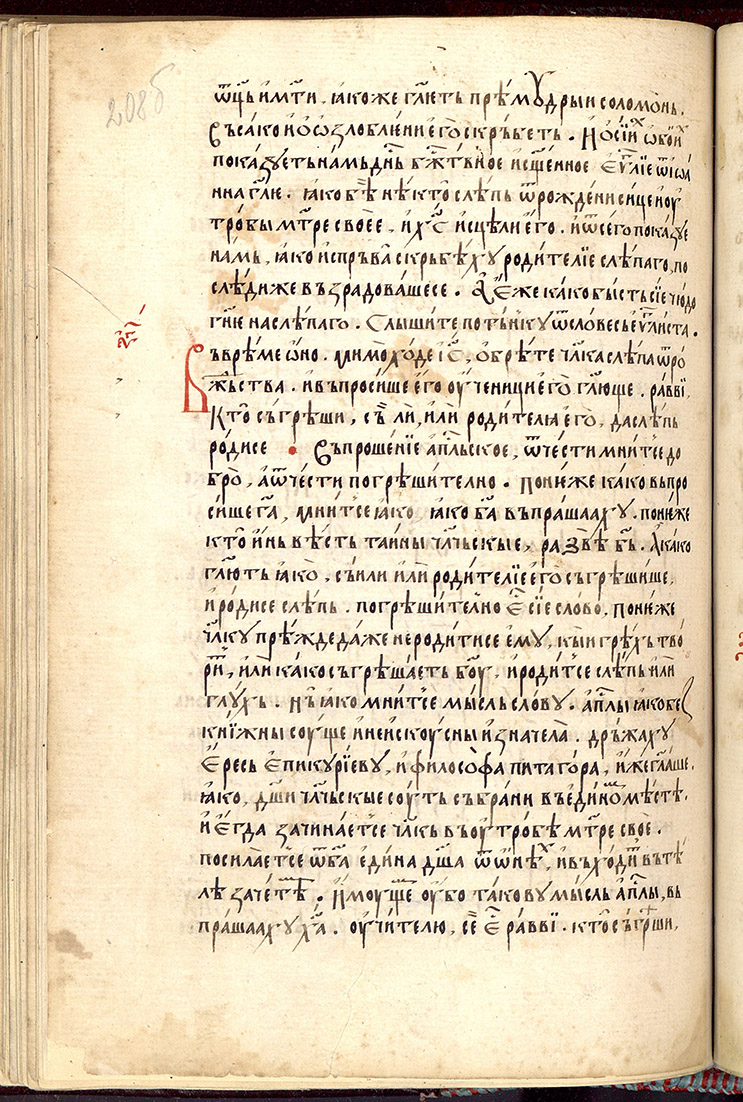 208б
ѿць и мт҃и. ꙗкоже гл҃еть прѣмꙋдрыи соломонь.
Съꙗко и о ѡзлоблѥни его скръбеть. Нѡ сїи ѡбои
показꙋеть намь дн҃ь бж҃твное и сщ҃енное еѵⷢ҇лїе ѿ іѡа
нна гл҃ю. ꙗко бѣ нѣкто слѣпь ѿ рождени сице и оу
тробы мт҃ре своее, и х҃с исцѣли его. и ѿ сего показꙋе
намь, ꙗко испръва скръбѣхꙋ родителїе слѣпаго, по
слѣди же възрадовашесе. А еже како бысть сїе чюдо
гн҃ие на слѣпаго. Слышите потьнкꙋ ѿ словесь еѵⷢ҇листа.
Въ врѣме ѡно. мимоходе і҃с, обрѣте чл҃ка слѣпа ѿ ро
жⷣьства. и въпросише его оученици его гл҃юще. равві,
кто съгрѣши, сь ли, или родителꙗ его, да слѣпь
родисе • Съпрошенїе ап҃льское, ѿчести мнитсе до
бро, а ѿчести погрѣшително. понѥже како въпро
сише г҃а, мнитсе ꙗко ꙗко б҃а въпрашаахꙋ. понѥже
кто инь вѣсть таины чл҃чьскые, развѣ б҃ь. А како
гл҃ють ꙗко, сьи или или родителїе его съгрѣшише,
и родисе слѣпь. погрѣшително е сїе слово, понѥже
чл҃кꙋ прѣжде даже не родитисе емꙋ, кыи грѣхъ тво
рить, или како съгрѣшаеть б҃оу, и родитсе слѣпь или
глꙋхь. Нь ꙗко мнитсе мысль словꙋ. ап҃лы ꙗко без
книжны соуще и неискоусны изначела. дръжахꙋ
ересь епикꙋрїевꙋ, и философа питагора, иже гл҃аше.
ꙗко, дш҃и чл҃чьскые соуть събрани въ единомь мѣстѣ.
и егда зачинаетсе чл҃кь въ оутробѣ мт҃ре свое.
посилаетсе ѿ б҃га едина дш҃а ѿ ѡнѣхь, и въходить въ тѣ
лѣ зачетѣ. Имоуще оубо таковꙋ мысль ап҃лы, въ
прашаахꙋ х҃а. оучителю, се е равві. кто съгрѣши,